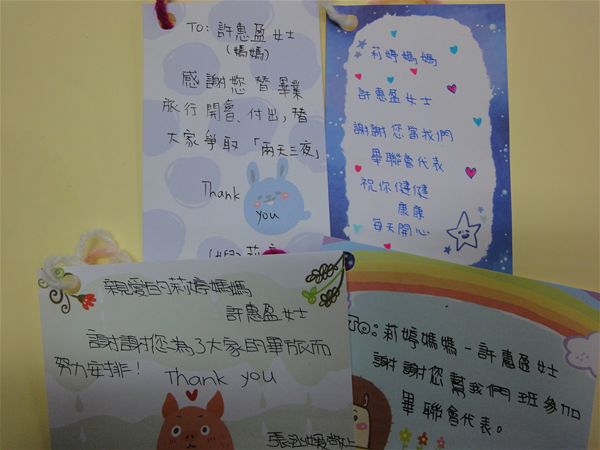 TO: 許惠盈女士
(媽媽)
感謝您替畢業
旅行開會、付出,替
大家爭取「兩天三夜」
Thank
you
莉婷媽媽
許惠盈女士
謝謝您當我們
畢聯會代表
祝你健健
康康
每天開心
親愛的莉婷媽媽
許惠盈女士
謝謝您為了大家的畢旅而
努力安排! Thank you
敬上
To: 莉婷媽媽-許惠盈女士
謝謝您幫我們班參加
畢聯會代表。